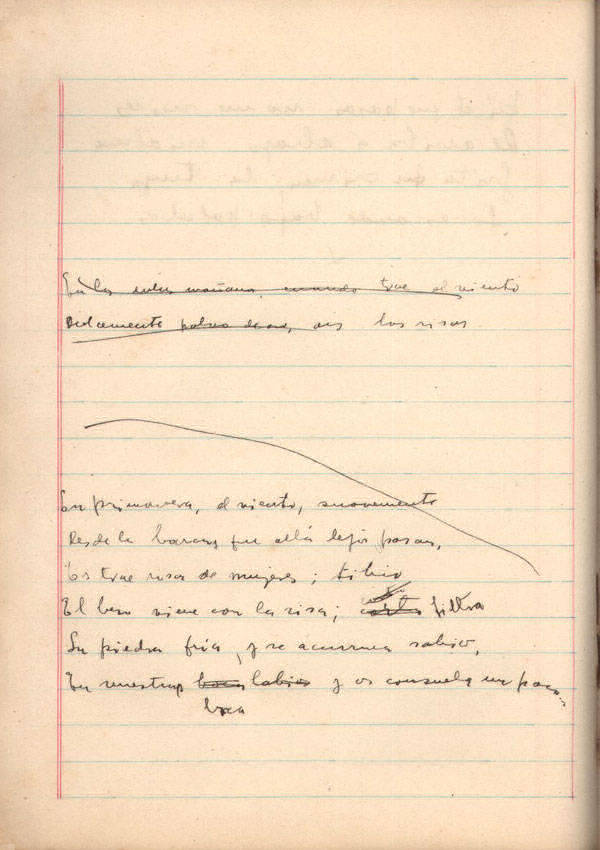 En las mañana, cuando trae el viento
Dulcemente polvo de oro, ois las risas
En primavera, el viento, suavemente
Desde la barca que allá lejos pasan,
Os trae risas de mujeres; tibio
El beso viene con la risa; filtra
Su piedra fría, y se acurruca sabio,
En vuestra boca labios y os consuela un poco...
boca